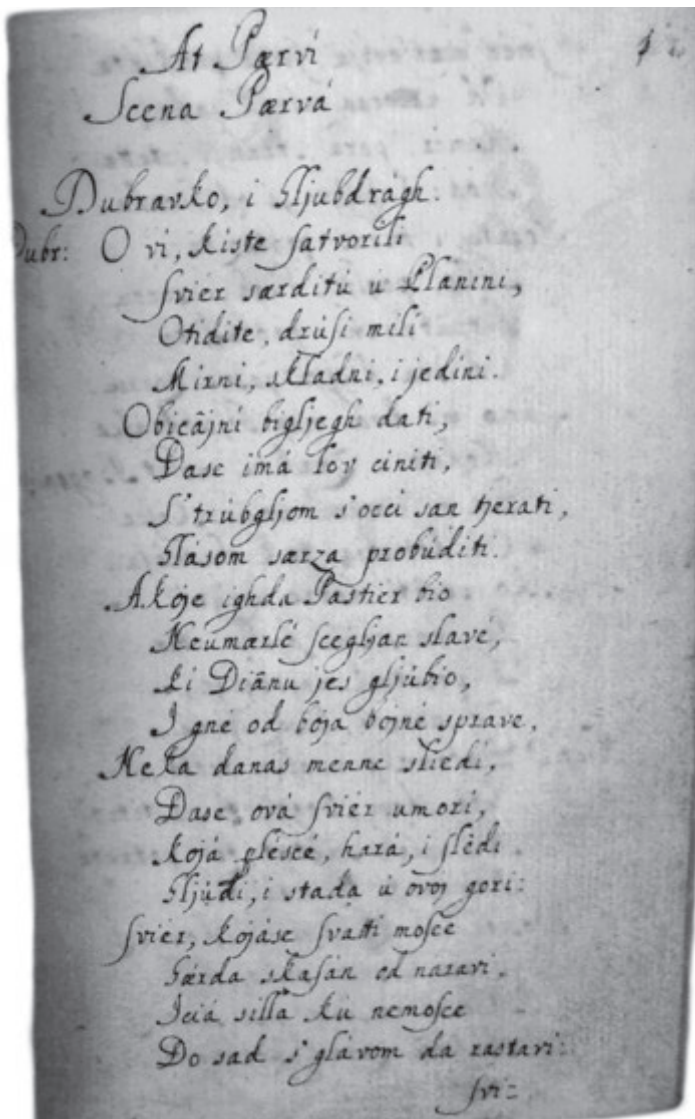 At Pærvi
Scena Pærvá
Dubravko, i Gljubdragh.
Dubr: O vi, kiste satvorili
svier særditú ú Planini,
Otidite, drúsi mili
Mirni, skladni, i jedini.
Obicâjni bigljegh dati,
Dase imá lov ciniti,
S'trúbgljom s'occi san tjerati,
Glásom særza probúditi.
Akoje ighda Pastier bio
Neúmærlé scegljan slave,
Ki Diânu jes gljúbio,
I gné od bója bójné sprave,
Neka danas menne sliedi,
Dase ová svier umori,
Kojá plésce, hará, i slédi
Gljúdi, i stada ú ovoj gori:
svier, kojáse svatti mosce
Gárda skasán od naravi,
Iciá silla kú nemosce
Do sad s'glávom da rastavi:
svi=